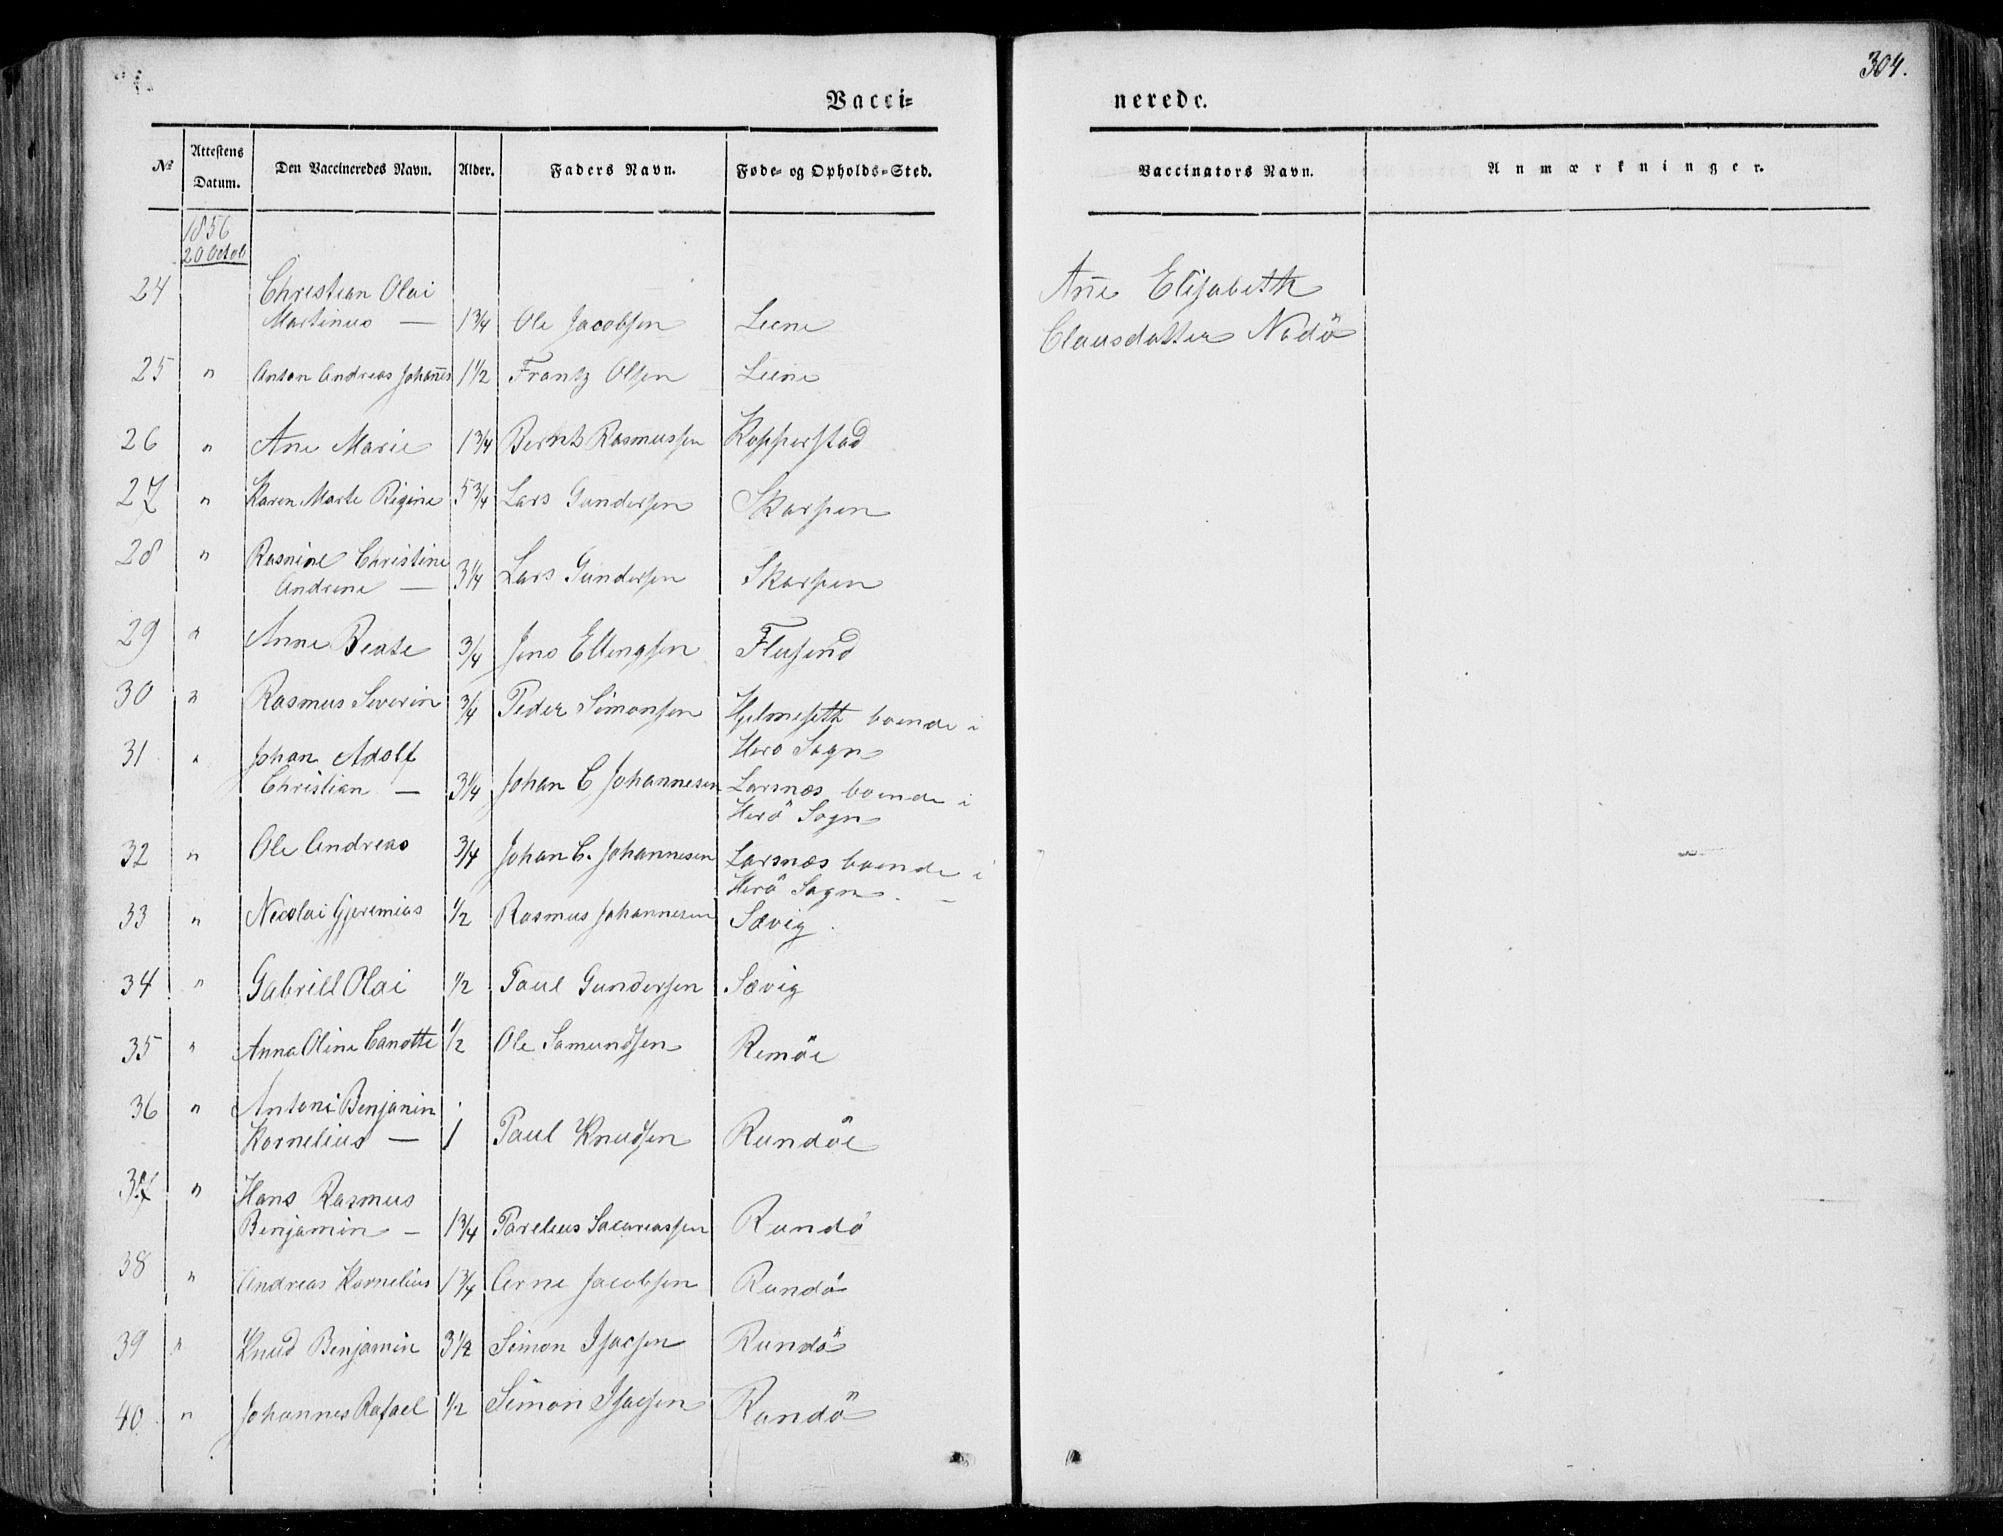 304.
Vacci=
nerede.
No Attestens Datum. Den Vaccineredes Navn. Alder. Faders Navn. Føde- og Opholds-Sted. Vaccinators Navn. Anmærkninger.
1856
20 Octob
24 Christian Olai
Martinus — 1 3/4 Ole Jacobsen Leene
Ane Elisabeth
Clausdatter Nødö
25 " Anton Andreas Johans 1 1/2 Frantz Olsen Leene
26 " Ane Marie 1 3/4 Bernt Rasmussen Kopperstad
27 " Karen Marte Regine 5 3/4 Lars Gundersen Skarpen
28 " Rasmine Christine
Andrine — 3 1/4 Lars Gundersen Skarpen
29 " Anne Beate 3/4 Jens Ellengsen Flusund
30 " Rasmus Severin 3/4 Peder Simonsen Hjelmesett boende i
Herö Sogn
31 " Johan Adolf
Christian — 3 1/4 Johan C Johannesen Larsnæs boende i
Herö Sogn
32 " Ole Andreas 3/4 Johan C. Johannesen Larsnæs boende i
Herö Sogn. —
33 " Nicolai Gjeremias 1/2 Rasmus Johannesen Sævig.
34 " Gabriel Olai 1/2 Paul Gundersen Sævig
35 " Anna Oline Canotte 1/2 Ole Samundsen Remöe
36 " Antoni Benjamin
Kornelius — 1 Paul Knudsen Rundöe
37 " Hans Rasmus
Benjamin — 1 3/4 Parelius Sacariassen Rundö
38 " Andreas Kornelius 1 3/4 Arne Jacobsen Rundö
39 " Knud Benjamin 3 1/2 Simon Isacsen Rundö
40 " Johannes Rafael 1/2 Simon Isacsen Rundö